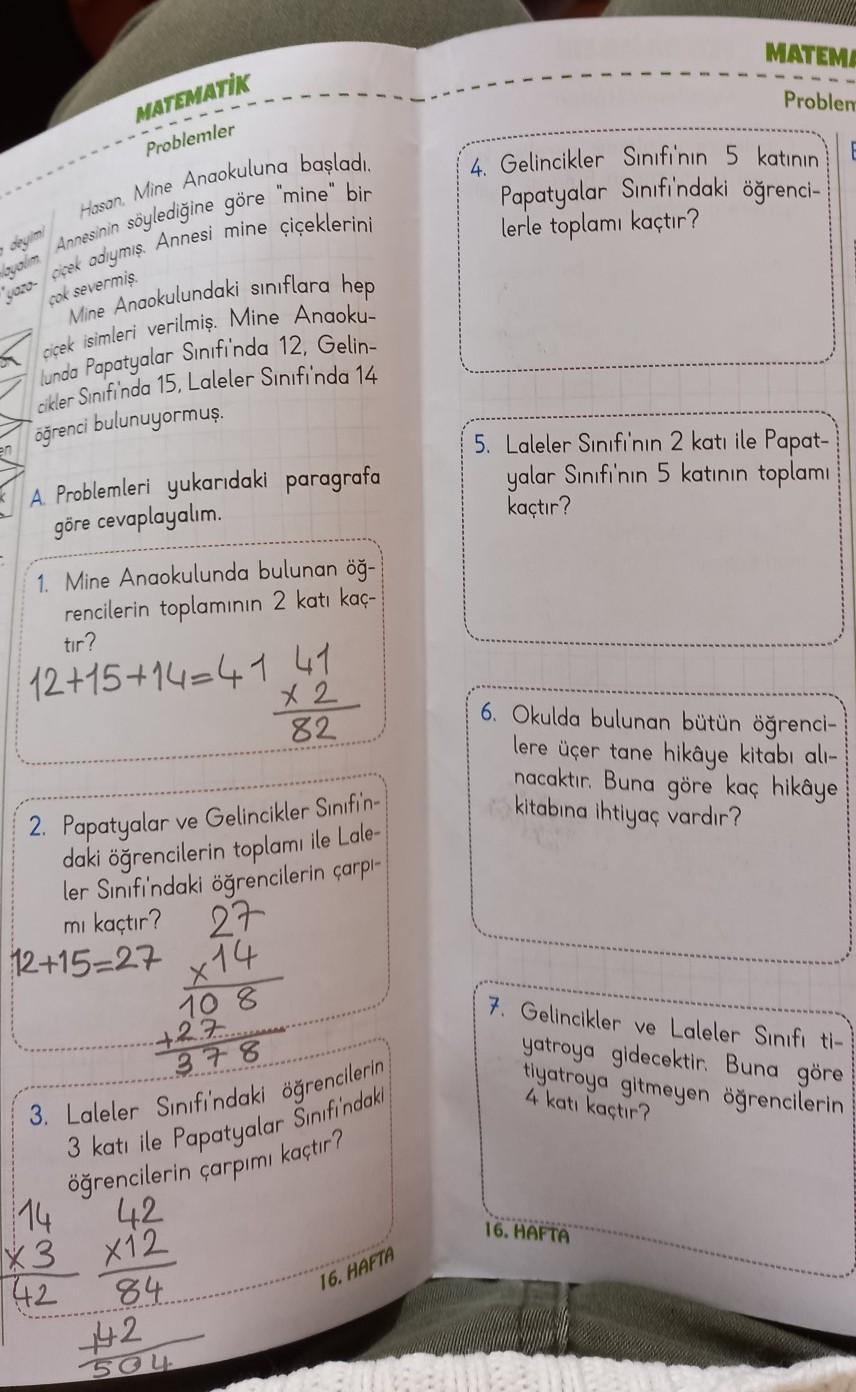 MATEMATİK
Problemler
Hasan, Mine Anaokuluna başladı.
Annesinin söylediğine göre "mine" bir
çiçek adıymış. Annesi mine çiçeklerini
çok severmiş.
Mine Anaokulundaki sınıflara hep
çiçek isimleri verilmiş. Mine Anaoku-
lunda Papatyalar Sınıfı'nda 12, Gelin-
cikler Sınıfı'nda 15, Laleler Sınıfı'nda 14
öğrenci bulunuyormuş.
A. Problemleri yukarıdaki paragrafa
göre cevaplayalım.
1. Mine Anaokulunda bulunan öğ-
rencilerin toplamının 2 katı kaç-
tır?
12+15+14=41
41
x 2
82
2. Papatyalar ve Gelincikler Sınıfı'n-
daki öğrencilerin toplamı ile Lale-
ler Sınıfı'ndaki öğrencilerin çarpı-
mı kaçtır?
12+15=27
27
x14
108
+27
378
3. Laleler Sınıfı'ndaki öğrencilerin
3 katı ile Papatyalar Sınıfı'ndaki
öğrencilerin çarpımı kaçtır?
14
x3
42
42
x12
84
+42
504
16. HAFTA
deyimi
layalım.
"yaza-
en
MATEMA
Problem
4. Gelincikler Sınıfı'nın 5 katının
Papatyalar Sınıfı'ndaki öğrenci-
lerle toplamı kaçtır?
5. Laleler Sınıfı'nın 2 katı ile Papat-
yalar Sınıfı'nın 5 katının toplamı
kaçtır?
6. Okulda bulunan bütün öğrenci-
lere üçer tane hikâye kitabı alı-
nacaktır. Buna göre kaç hikâye
kitabına ihtiyaç vardır?
7. Gelincikler ve Laleler Sınıfı ti-
yatroya gidecektir. Buna göre
tiyatroya gitmeyen öğrencilerin
4 katı kaçtır?
16. HAFTA